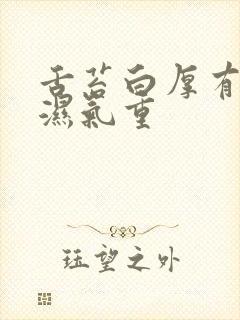 舌苔白厚有
濕氣重
珏望之外